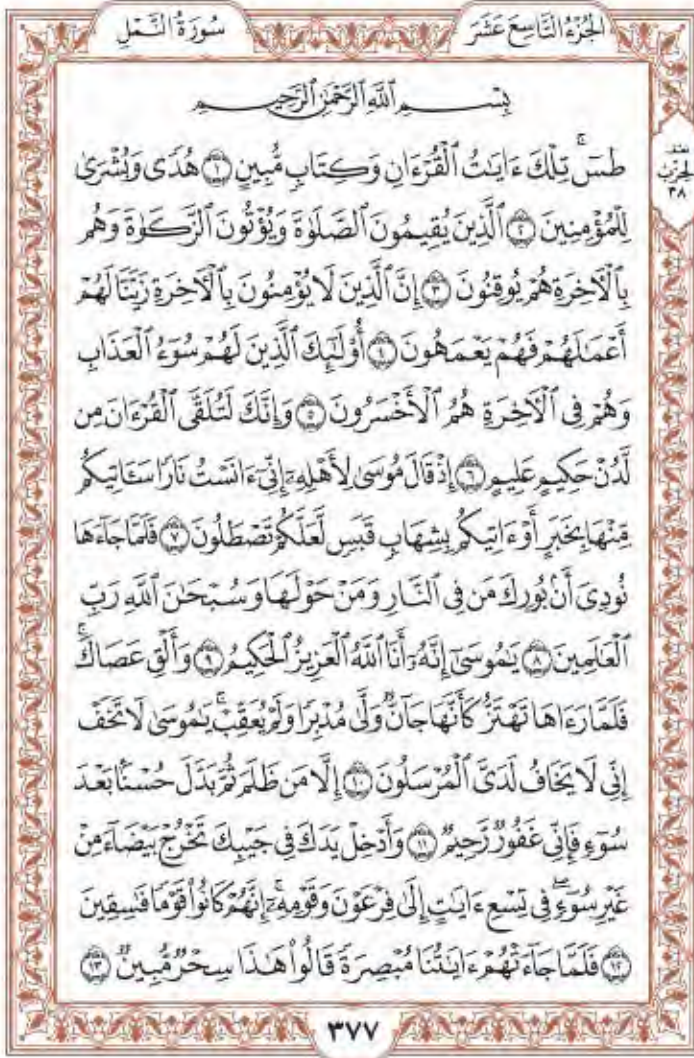 الجُزْءُ التَّاسِعَ عَشَرَ
سُورَةُ النَّمْلِ
بِسْمِ ٱللَّهِ ٱلرَّحْمَٰنِ ٱلرَّحِيمِ
طسٓۚ تِلْكَ ءَايَٰتُ ٱلْقُرْءَانِ وَكِتَابٍ مُّبِينٍ ١ هُدًى وَبُشْرَىٰ
لِلْمُؤْمِنِينَ ٢ ٱلَّذِينَ يُقِيمُونَ ٱلصَّلَوٰةَ وَيُؤْتُونَ ٱلزَّكَوٰةَ وَهُم
بِٱلْءَاخِرَةِ هُمْ يُوقِنُونَ ٣ إِنَّ ٱلَّذِينَ لَا يُؤْمِنُونَ بِٱلْءَاخِرَةِ زَيَّنَّا لَهُمْ
أَعْمَٰلَهُمْ فَهُمْ يَعْمَهُونَ ٤ أُو۟لَٰٓئِكَ ٱلَّذِينَ لَهُمْ سُوٓءُ ٱلْعَذَابِ
وَهُمْ فِى ٱلْءَاخِرَةِ هُمُ ٱلْأَخْسَرُونَ ٥ وَإِنَّكَ لَتُلَقَّى ٱلْقُرْءَانَ مِن
لَّدُنْ حَكِيمٍ عَلِيمٍ ٦ إِذْ قَالَ مُوسَىٰ لِأَهْلِهِۦٓ إِنِّىٓ ءَانَسْتُ نَارًا سَـَٔاتِيكُم
مِّنْهَا بِخَبَرٍ أَوْ ءَاتِيكُم بِشِهَابٍ قَبَسٍ لَّعَلَّكُمْ تَصْطَلُونَ ٧ فَلَمَّا جَآءَهَا
نُودِىَ أَنۢ بُورِكَ مَن فِى ٱلنَّارِ وَمَنْ حَوْلَهَا وَسُبْحَٰنَ ٱللَّهِ رَبِّ
ٱلْعَٰلَمِينَ ٨ يَٰمُوسَىٰٓ إِنَّهُۥٓ أَنَا ٱللَّهُ ٱلْعَزِيزُ ٱلْحَكِيمُ ٩ وَأَلْقِ عَصَاكَۚ
فَلَمَّا رَءَاهَا تَهْتَزُّ كَأَنَّهَا جَآنٌّ وَلَّىٰ مُدْبِرًا وَلَمْ يُعَقِّبْۚ يَٰمُوسَىٰ لَا تَخَفْ
إِنِّى لَا يَخَافُ لَدَىَّ ٱلْمُرْسَلُونَ ١٠ إِلَّا مَن ظَلَمَ ثُمَّ بَدَّلَ حُسْنًۢا بَعْدَ
سُوٓءٍ فَإِنِّى غَفُورٌ رَّحِيمٌ ١١ وَأَدْخِلْ يَدَكَ فِى جَيْبِكَ تَخْرُجْ بَيْضَآءَ مِنْ
غَيْرِ سُوٓءٍۖ فِى تِسْعِ ءَايَٰتٍ إِلَىٰ فِرْعَوْنَ وَقَوْمِهِۦٓۚ إِنَّهُمْ كَانُوا۟ قَوْمًا فَٰسِقِينَ
١٢ فَلَمَّا جَآءَتْهُمْ ءَايَٰتُنَا مُبْصِرَةً قَالُوا۟ هَٰذَا سِحْرٌ مُّبِينٌ ١٣
الحِزْب
٣٨
٣٧٧